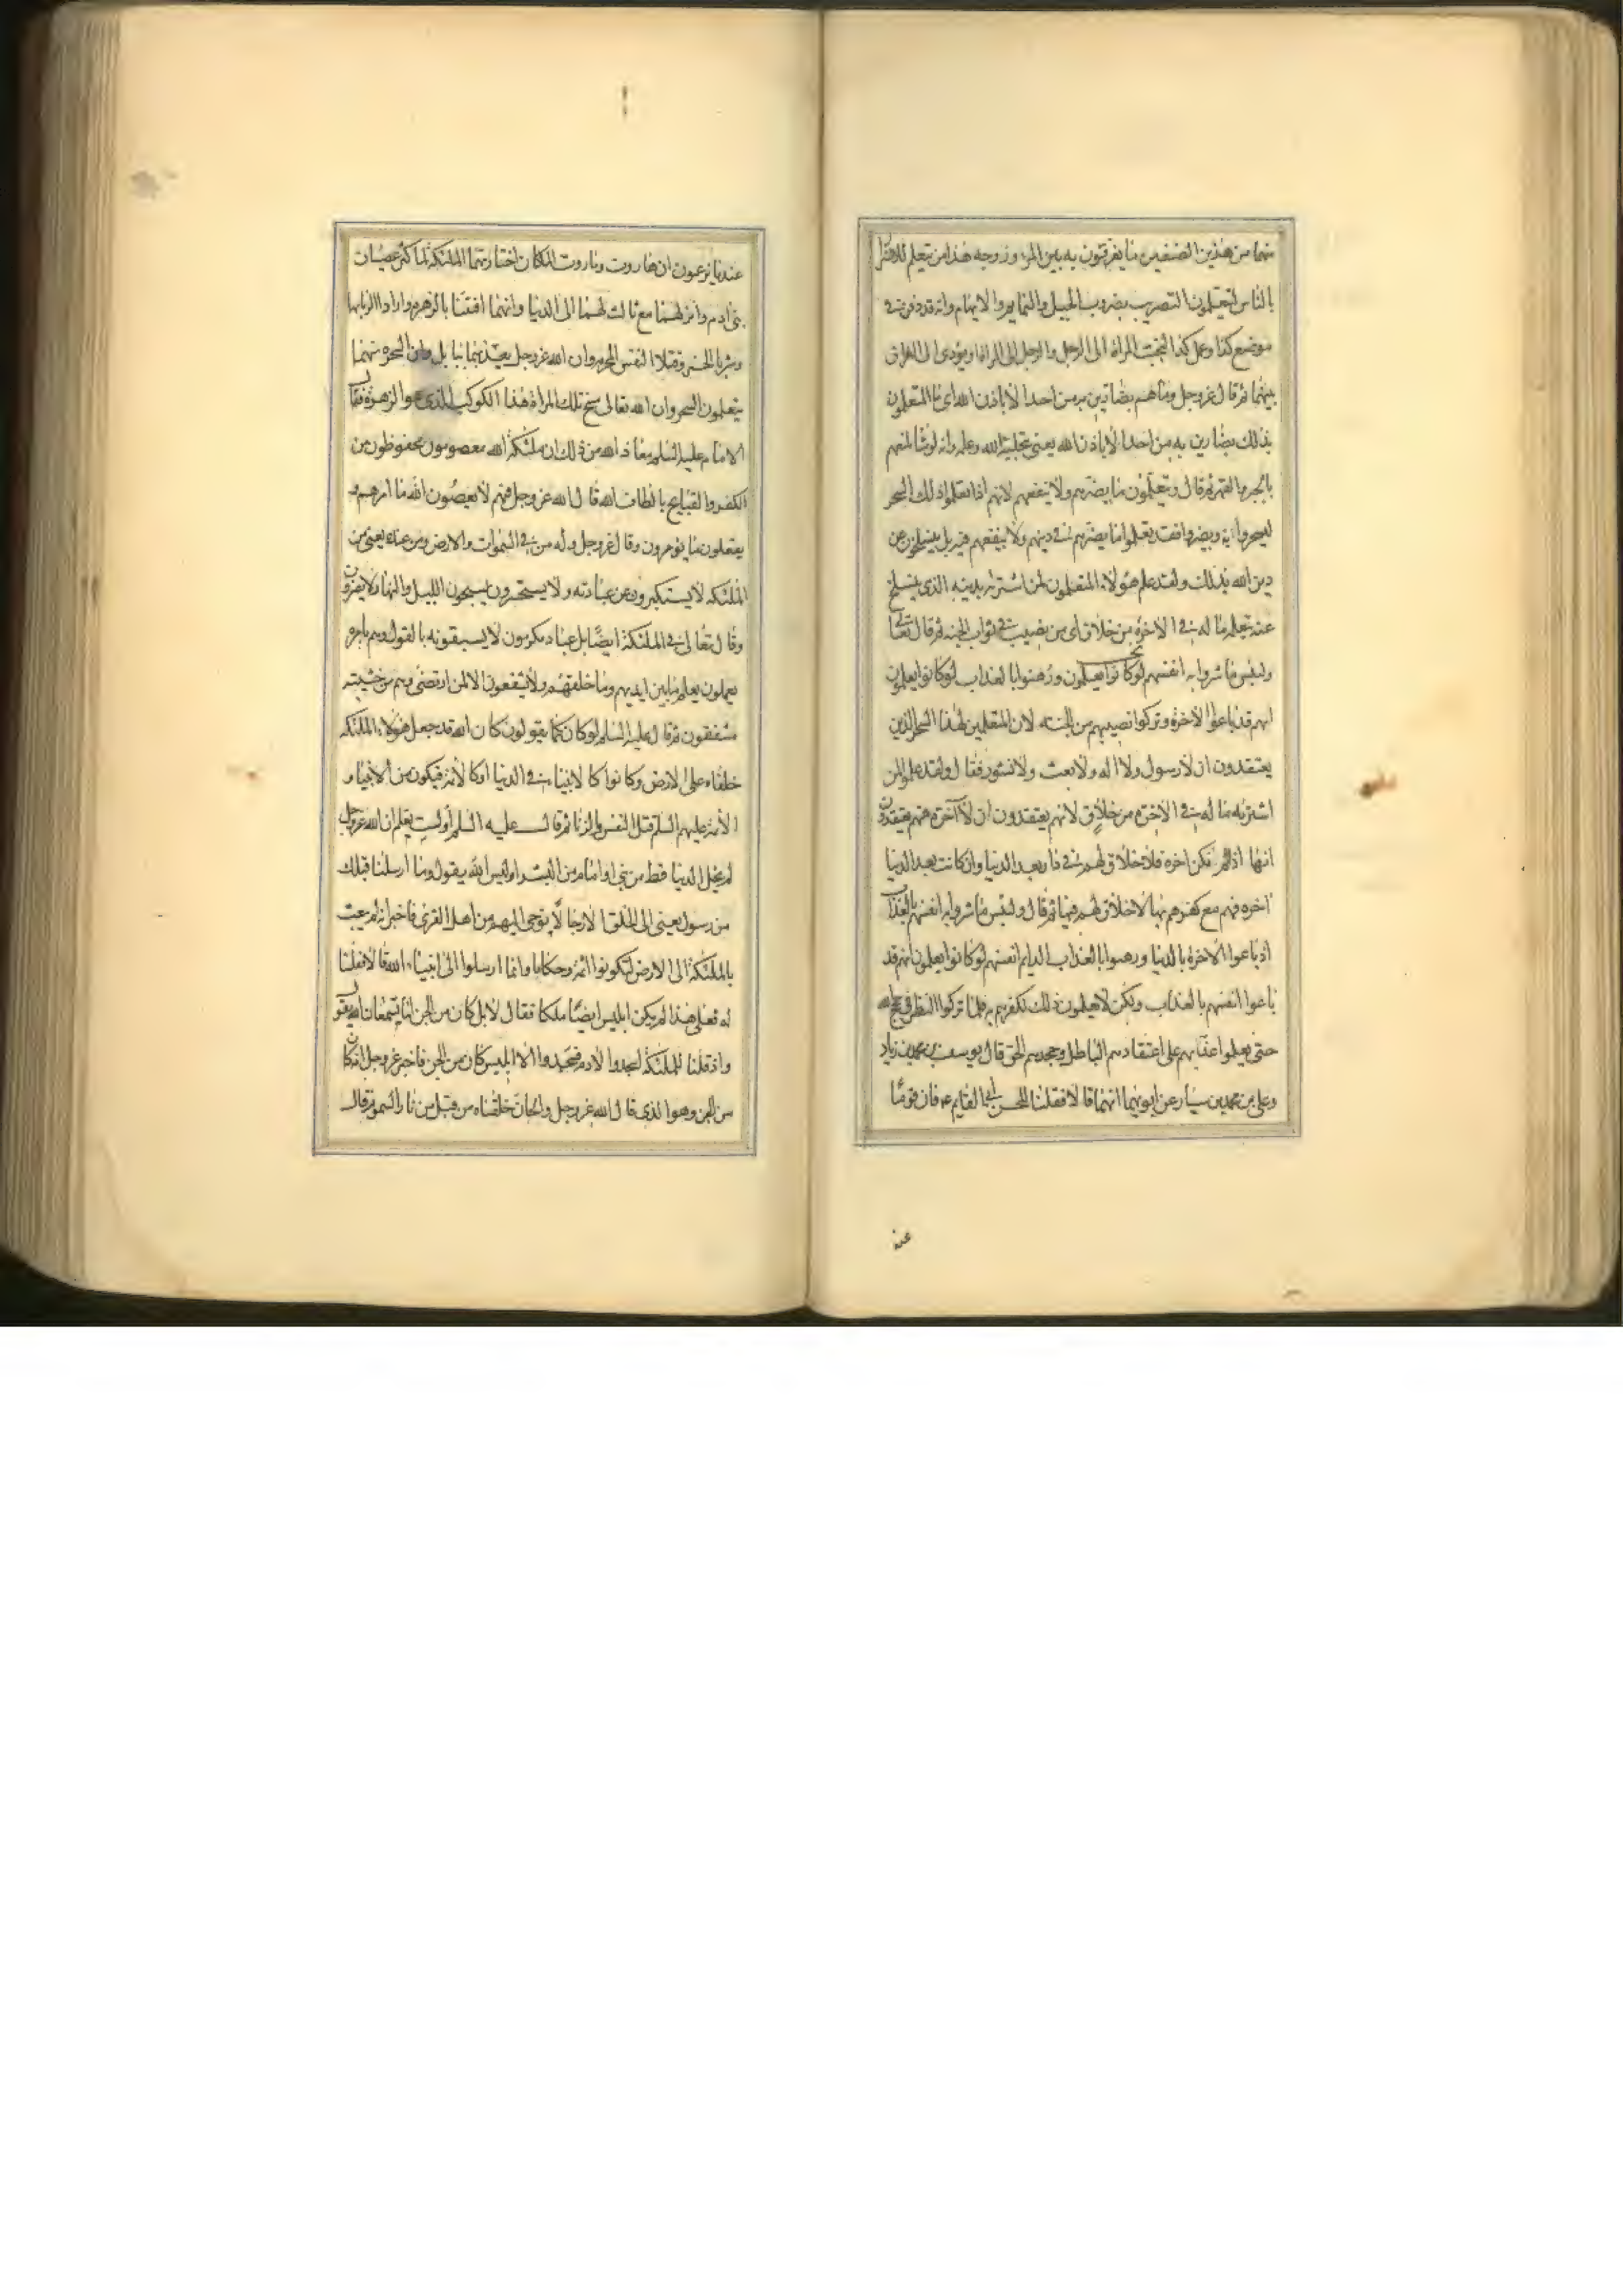 منهما من هذين الصنفين ما يفرقون به بين المرء وزوجه هذا من يتعلم للاضرار
بالناس يتعلمون التضريب بضروب الحيل والنمايم والايهام وانه قد دفن في
موضع كذا وعمل كذا لتحبب المراة الى الرجل والرجل الى المراة او يؤدى الى الفراق
بينهما ثم قال عز وجل وما هم بضارين به من احد الا باذن الله اى ما المتعلمون
بذلك بضارين به من احد الا باذن الله يعنى بتخلية الله وعلمه وانه لو شا لمنعهم
بالجبر والقهر ثم قال ويتعلمون ما يضرهم ولا ينفعهم لانهم اذا تعلموا ذلك السحر
ليسحروا به ويضروا فقد تعلموا ما يضرهم في دينهم ولا ينفعهم فيه بل ينسلخون عن
دين الله بذلك ولقد علم هؤلاء المتعلمون لمن اشتراه بدينه الذى ينسلخ
عنه بتعلمه ما له في الاخرة من خلاق اى من نصيب في ثواب الجنه ثم قال تعالى
ولبئس ما شروا به انفسهم لو كانوا يعلمون ورهنوا بالعذاب لو كانوا يعلمون
انهم قد باعوا الاخرة وتركوا نصيبهم من الجنه لان المتعلمين لهذا السحر الذين
يعتقدون ان لا رسول ولا اله ولا بعث ولا نشور فقال ولقد علموا لمن
اشتريه ما له في الاخرة من خلاق لانهم يعتقدون ان لا آخرة فهم يعتقدون
انها اذا لم تكن اخرة فلا خلاق لهم في دار بعد الدنيا وان كانت بعد الدنيا
اخره فهم مع كفرهم بها لا خلاق لهم فيها ثم قال ولبئس ما شروا به انفسهم بالعذاب
اذ باعوا الاخرة بالدنيا ورهنوا بالعذاب الدايم انفسهم لو كانوا يعلمون انهم قد
باعوا انفسهم بالعذاب ولكن لا يعلمون ذلك لكفرهم به فلما تركوا النظر في حجج الله
حتى يعلموا عذابهم على اعتقادهم الباطل وجحدهم الحق قال يوسف بن محمد بن زياد
وعلى بن محمد بن سيار عن ابويهما انهما قالا فقلنا للحسن ابى القايم ع فان قوما
عند
عندنا يزعمون ان هاروت وماروت ملكان اختارتهما الملئكة لما كثر عصيان
بنى ادم وانزلهما مع ثالث لهما الى الدنيا وانهما افتتنا بالزهره وارادا الزنا بها
وشربا الخمر وقتلا النفس المحرمه وان الله عز وجل يعذبهما ببابل وان السحره منهما
يتعلمون السحر وان الله تعالى مسخ تلك المراة هذا الكوكب الذى هو الزهرة فقال
الامام عليه السلم معاذ الله من ذلك ان ملئكة الله معصومون محفوظون من
الكفر والقبايح بالطاف الله قال الله عز وجل فيهم لا يعصون الله ما امرهم و
يفعلون ما يؤمرون وقال عز وجل وله من في السموات والارض ومن عنده يعنى من
الملئكه لا يستكبرون عن عبادته ولا يستحسرون يسبحون الليل والنهار لا يفترون
وقال تعالى في الملئكة ايضا بل عباد مكرمون لا يسبقونه بالقول وهم بامره
يعملون يعلم ما بين ايديهم وما خلفهم ولا يشفعون الا لمن ارتضى وهم من خشيته
مشفقون ثم قال عليه السلم لو كان كما يقولون كان الله قد جعل هؤلاء الملئكه
خلفاء على الارض وكانوا كالانبياء في الدنيا او كالائمة فيكون من الانبياء و
الائمة عليهم السلم قتل النفس والزنا ثم قال عليه السلم أولست تعلم ان الله عز وجل
لم يخل الدنيا قط من نبى او امام من البشر اوليس الله يقول وما ارسلنا قبلك
من رسول يعنى الى الخلق الا رجالا يوحى اليهم من اهل القرى فاخبر انه لم يبعث
بالملئكة الى الارض ليكونوا ائمة وحكاما وانما ارسلوا الى انبياء الله قالا فقلنا
له فعلى هذا لم يكن ابليس ايضا ملكا فقال لا بل كان من الجن اما تسمعان الله يقول
واذ قلنا للملئكة اسجدوا لادم فسجدوا الا ابليس كان من الجن فاخبر عز وجل انه كان
من الجن وهو الذى قال الله عز وجل والجان خلقناه من قبل من نار السموم قال